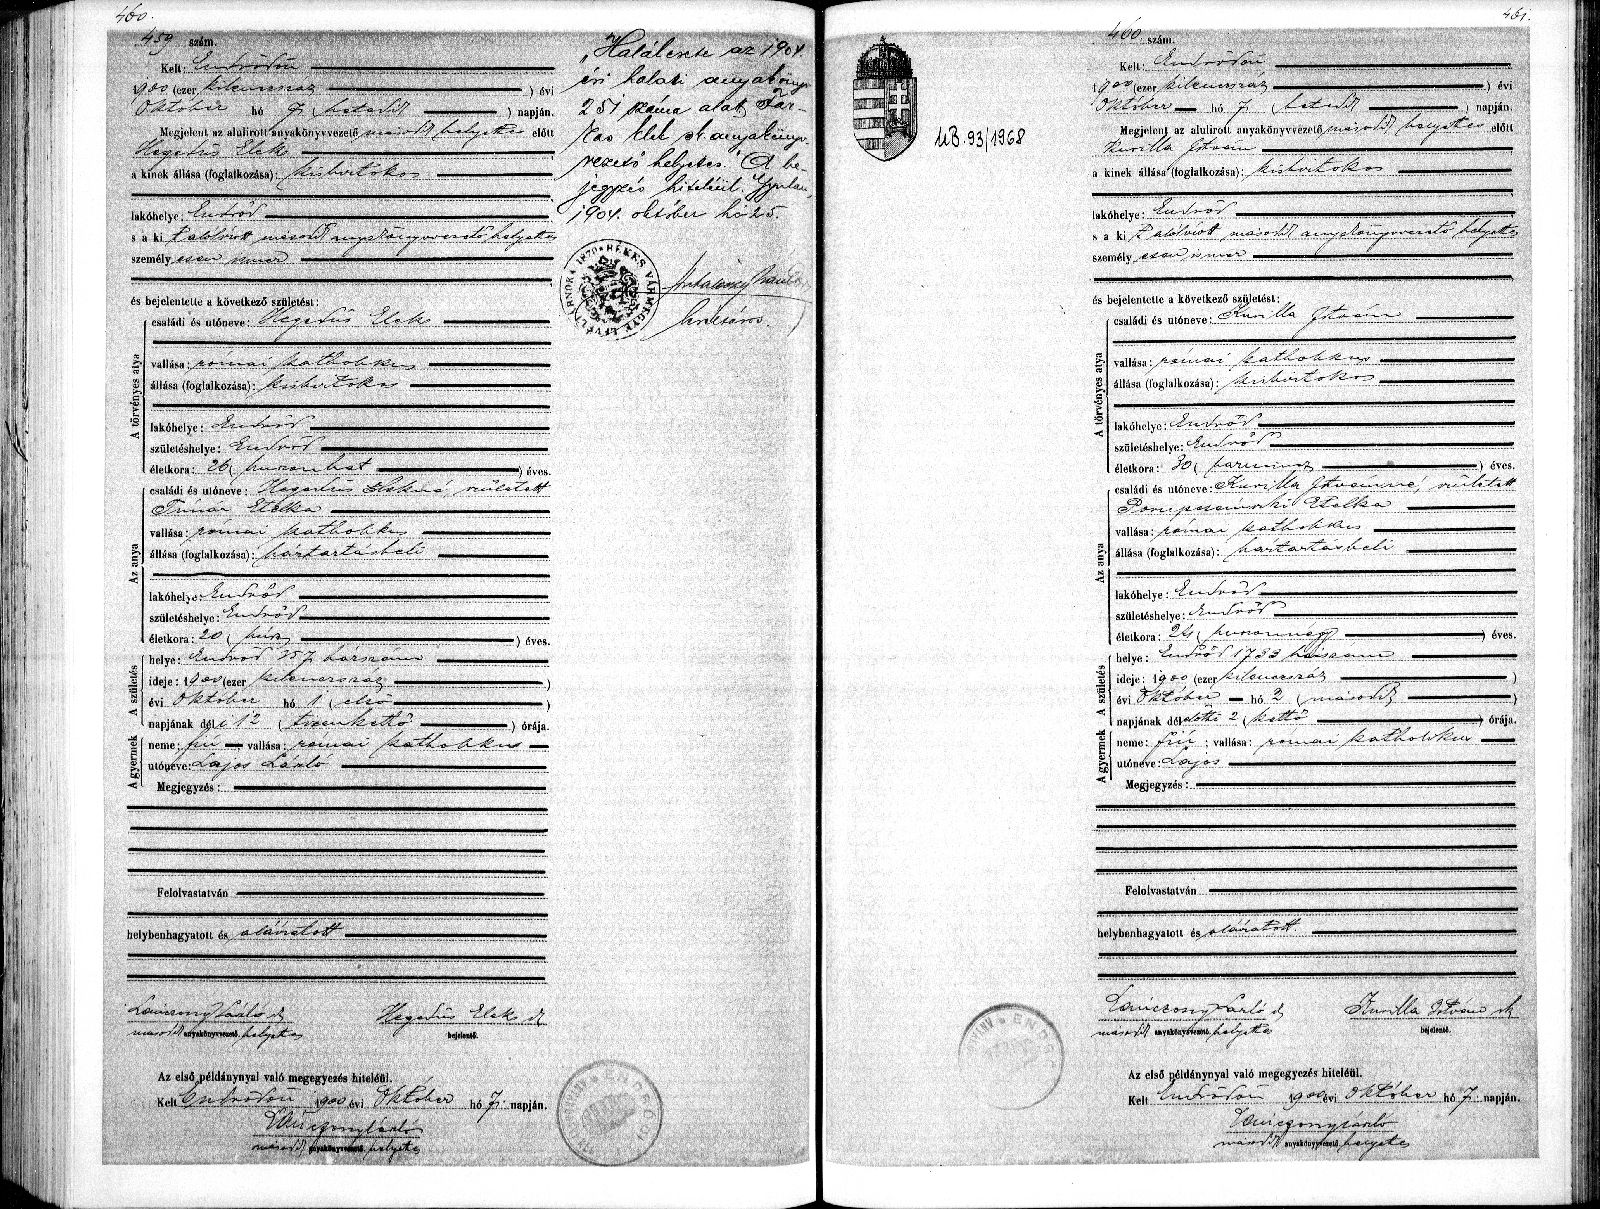 460.
459 szám.
Kelt: Endrődön
1900 (ezer kilencszáz ) évi
Október hó 7 (hetedik ) napján.
Megjelent az alulirott anyakönyvvezető másodh helyettes előtt
Hegedüs Elek
a kinek állása (foglalkozása): kisbirtokos
lakóhelye: Endrőd
s a ki t alólirott másodh anyakönyvvezető helyettes
személyesen ismer
és bejelentette a következő születést:
A törvényes atya
családi és utóneve: Hegedüs Elek
vallása: római katholikus
állása (foglalkozása): kisbirtokos
lakóhelye: Endrőd
születéshelye: Endrőd
életkora: 26 ( huszonhat ) éves.
Az anya
családi és utóneve: Hegedüs Elekné, született
Timár Etelka
vallása: római katholikus
állása (foglalkozása): háztartásbeli
lakóhelye: Endrőd
születéshelye: Endrőd
életkora: 20 ( húsz ) éves.
A születés
helye: Endrőd 157 házszám
ideje: 1900 (ezer kilencszáz )
évi Október hó 1 ( első )
napjának dél i 12 ( tizenkettő ) órája.
A gyermek
neme: fiú vallása: római katholikus
utóneve: Lajos László
Megjegyzés:
Felolvastatván
helybenhagyatott és aláiratott
László
másodh anyakönyvvezető helyettes
Hegedüs Elek
bejelentő.
Az első példánynyal való megegyezés hiteléül.
Kelt Endrődön 1900 évi Október hó 7. napján.
László
másodh anyakönyvvezető helyettes
„Halálesete az 1904.
évi halálti anyakönyv
251 száma alatt Far-
kas Elek s. anyakönyv-
vezető helyettes." A be-
jegyzés hiteléül. Gyulán,
1904. október hó 25.
BÉKÉS VÁRMEGYE LEVÉLTÁRNOKA 1879
461.
460 szám.
MB. 93/1968
Kelt: Endrődön
1900 (ezer kilencszáz ) évi
Október hó 7 ( hetedik ) napján.
Megjelent az alulirott anyakönyvvezető másodh helyettes előtt
Kurilla István
a kinek állása (foglalkozása): kisbirtokos
lakóhelye: Endrőd
s a ki t alólirott másodh anyakönyvvezető helyettes
személyesen ismer
és bejelentette a következő születést:
A törvényes atya
családi és utóneve: Kurilla István
vallása: római katholikus
állása (foglalkozása): kisbirtokos
lakóhelye: Endrőd
születéshelye: Endrőd
életkora: 30 ( harmincz ) éves.
Az anya
családi és utóneve: Kurilla Istvánné, született
Etelka
vallása: római katholikus
állása (foglalkozása): háztartásbeli
lakóhelye: Endrőd
születéshelye: Endrőd
életkora: 24 ( huszonnégy ) éves.
A születés
helye: Endrőd 1733 házszám
ideje: 1900 (ezer kilencszáz )
évi Október hó 2 ( második )
napjának dél előtti 2 ( kettő ) órája.
A gyermek
neme: fiú ; vallása: római katholikus
utóneve: Lajos
Megjegyzés:
Felolvastatván
helybenhagyatott és aláiratott.
László
másodh anyakönyvvezető helyettes
Kurilla István
bejelentő.
Az első példánynyal való megegyezés hiteléül.
Kelt Endrődön 1900 évi Október hó 7. napján.
László
másodh anyakönyvvezető helyettes